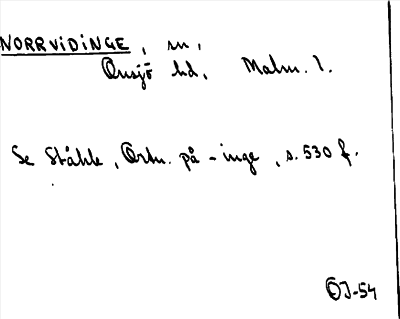 NORRVIDINGE, sn,
Onsjö hd, Malm. l.
Se Ståhle, Ortn. på -inge, s. 530 f.
OJ-54